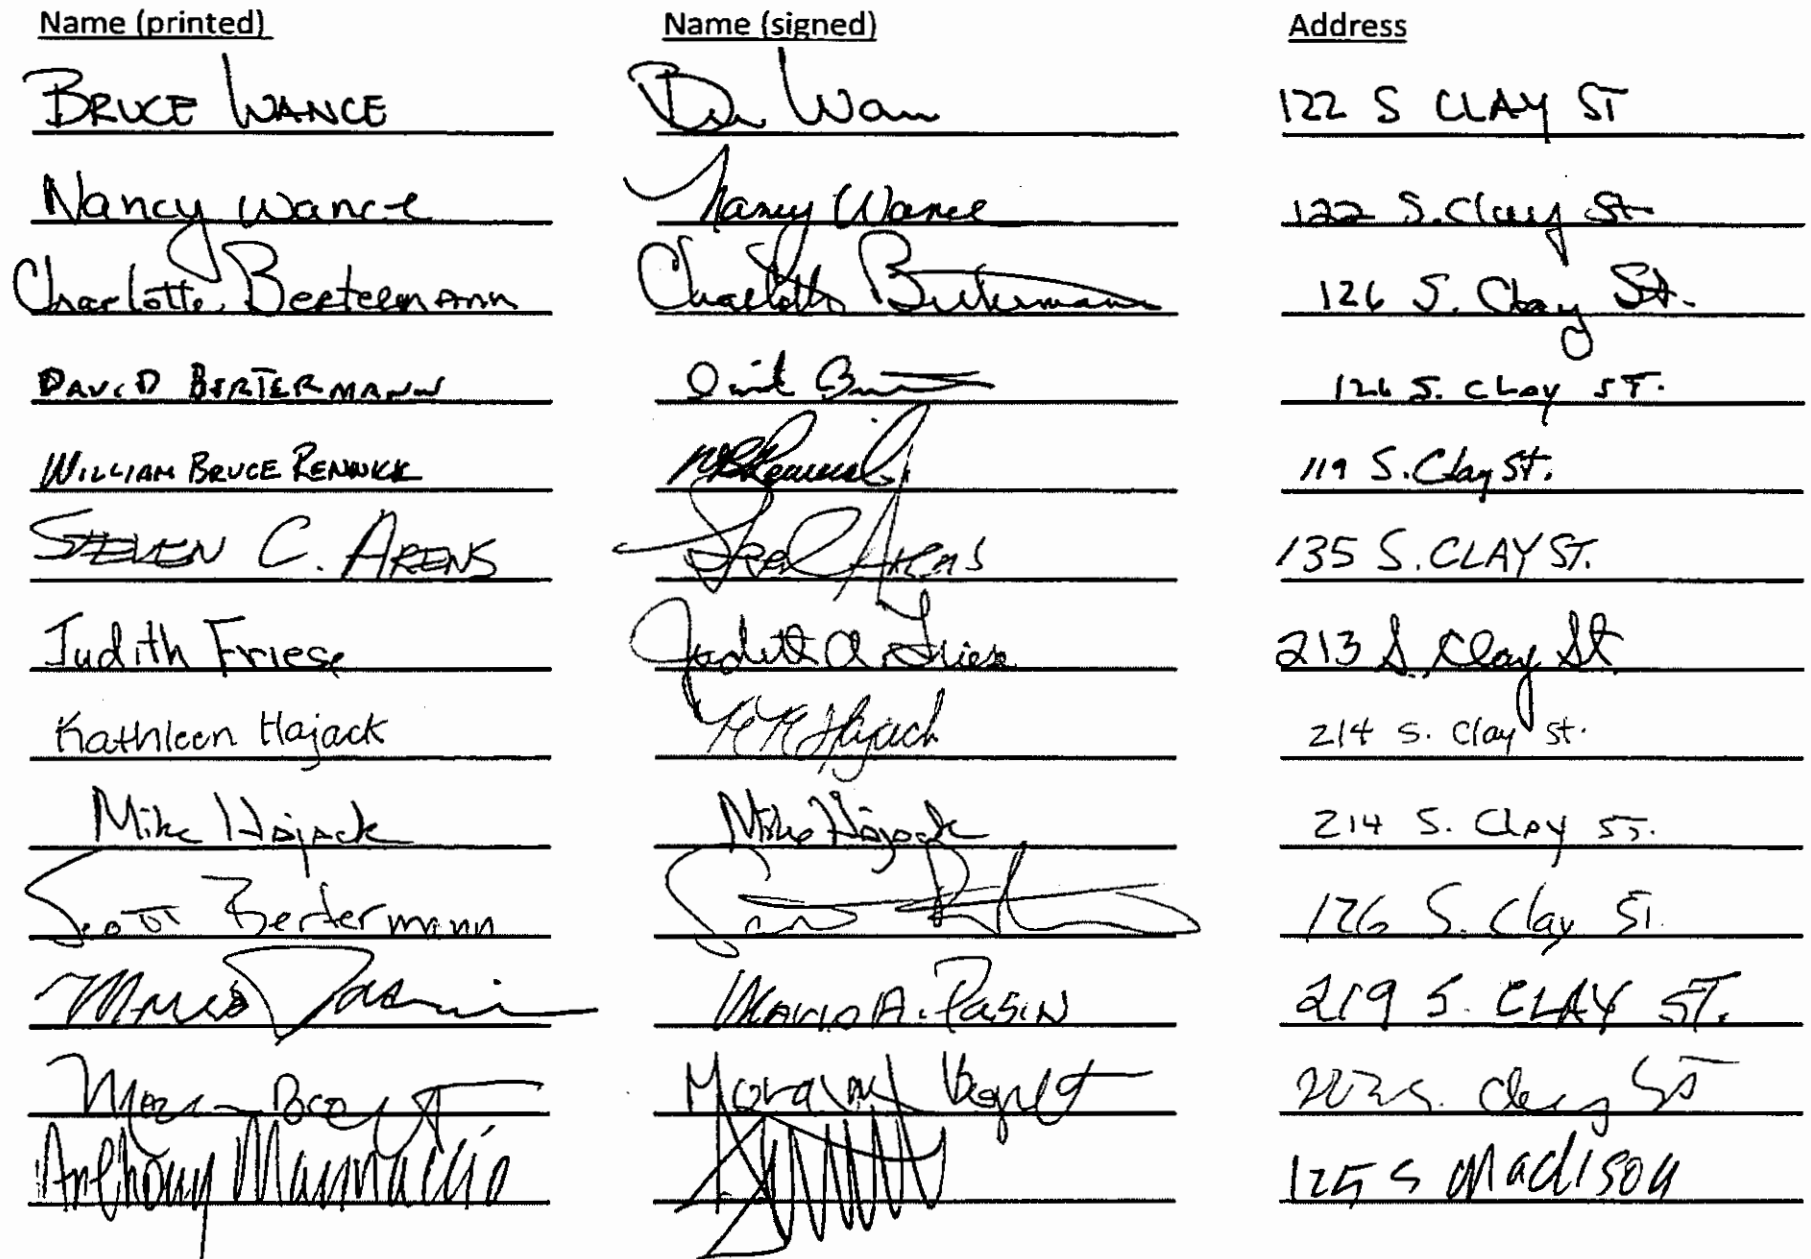 Name (printed) Name (signed) Address
BRUCE WANCE 122 S CLAY ST
Nancy Wance Nancy Wance 122 S. Clay St
Charlotte Bertermann Charlotte Bertermann 126 S. Clay St.
DAVID BERTERMANN 126 S. Clay ST.
WILLIAM BRUCE RENWICK WBRenwick 119 S. Clay St.
STEVEN C. ARENS Arens 135 S. CLAY ST.
Judith Friese Judith A. Friese 213 S. Clay St
Kathleen Hajack KM Hajack 214 S. Clay St.
Mike Hajack Mike Hajack 214 S. Clay ST.
Scott Bertermann 126 S. Clay St.
Mario Pasin Mario A. Pasin 219 S. CLAY ST.
S. Clay St
Anthony 125 S Madison